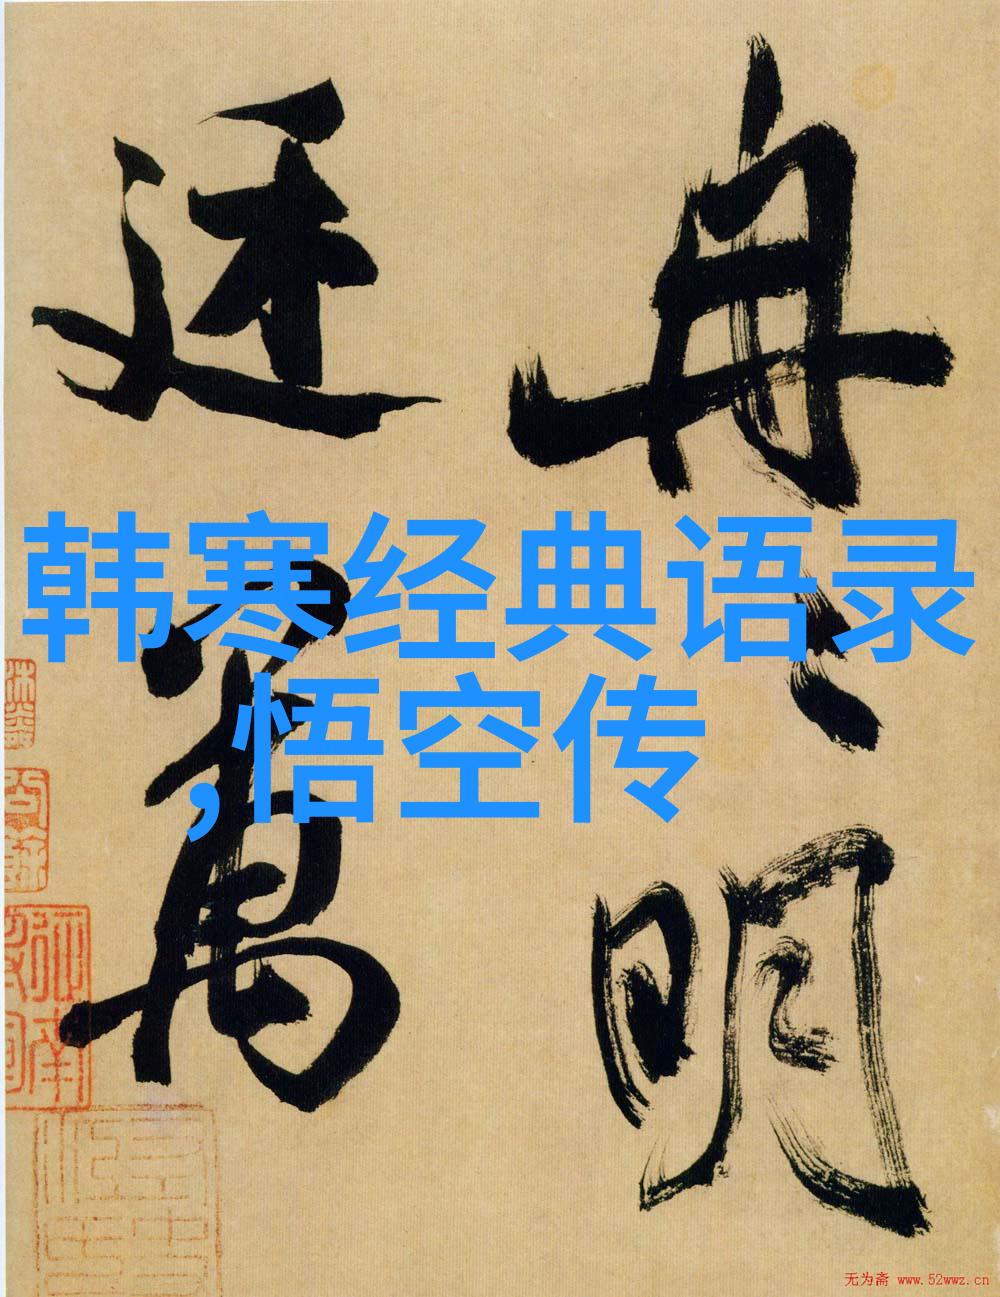 冉々明
廷萬
韩寒经典语录
,悟空传
无为斋 www.52wwz.cn